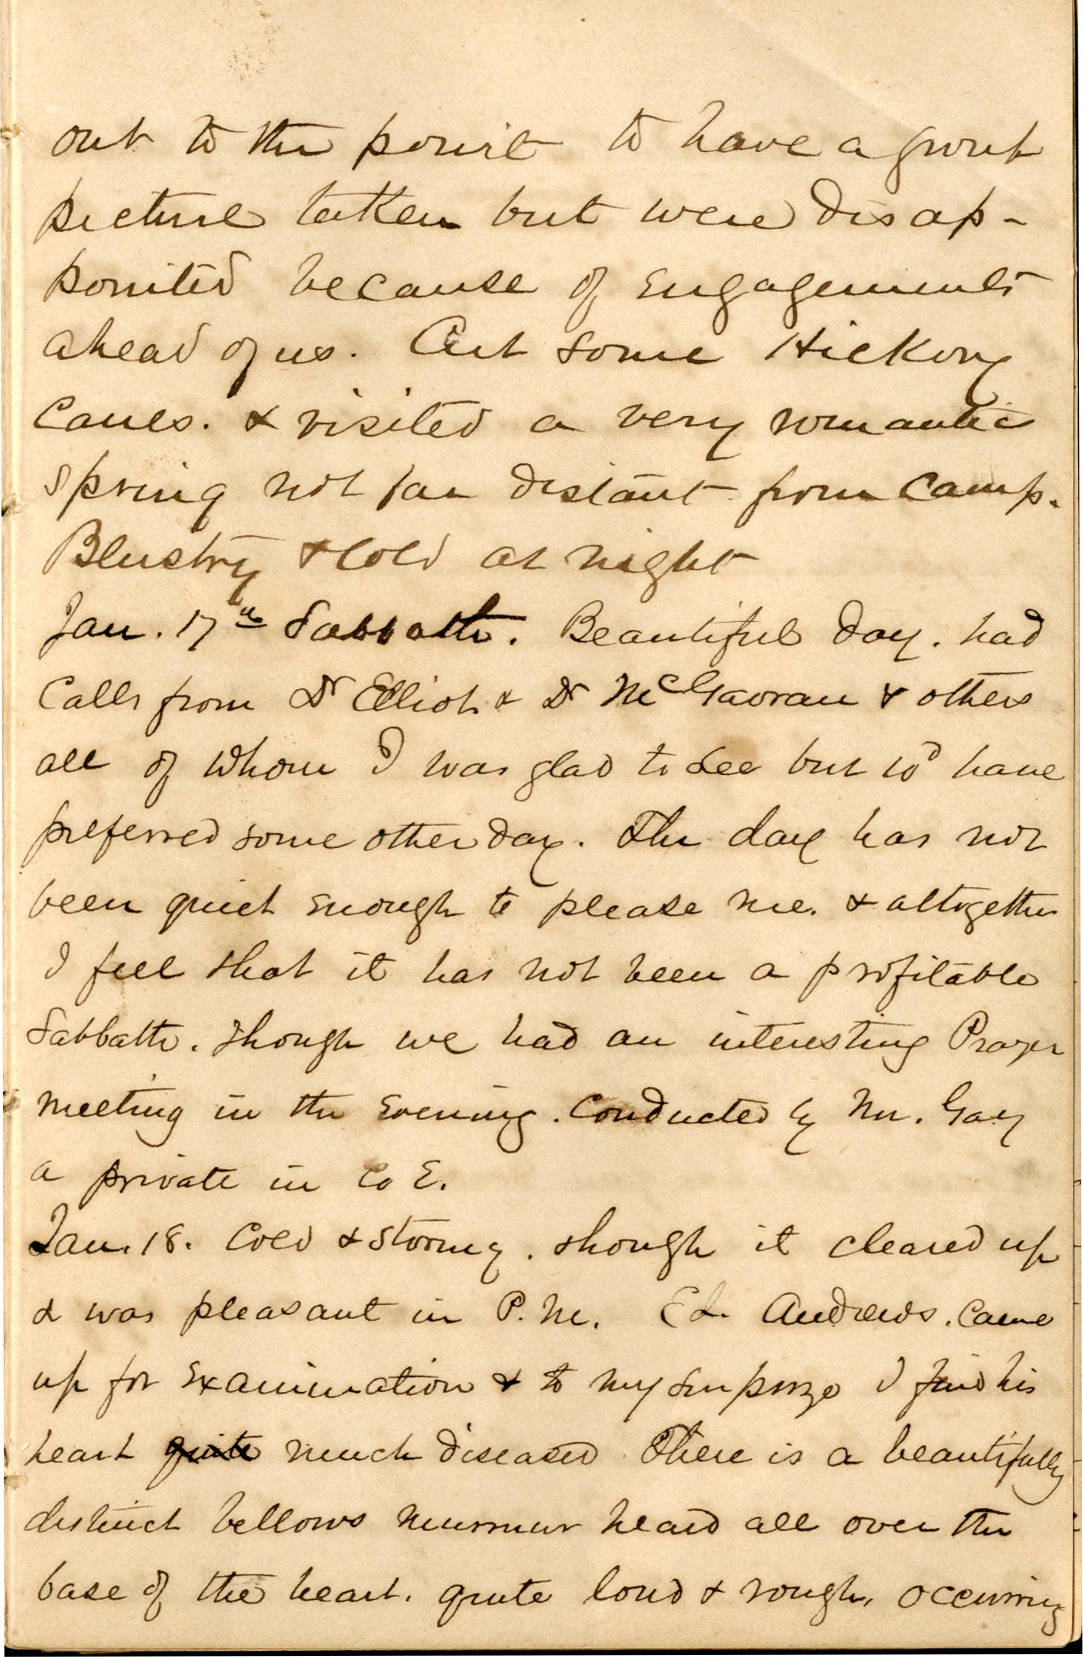 out to the point to have a grout
picture taken but were disap-
pointed because of engagements
ahead of us. Cut some Hickory
canes. & visited a very romantic
spring not far distant from camp.
Blustry & cold at night
Jan. 17th Sabbath. Beautiful day. had
calls from Dr Elliot & Dr McGavran & others
all of whom I was glad to see but wd have
preferred some other day. The day has not
been quiet enough to please me. & altogether
I feel that it has not been a profitable
Sabbath. though we had an interesting Prayer
meeting in the evening. conducted by Mr. Gay
a private in Co E.
Jan. 18. Cold & stormy. though it cleared up
& was pleasant in P.M. Ed. Andrews. came
up for examination & to my surprize I find his
heart quite much diseased There is a beautifully
distinct bellows murmur heard all over the
base of the heart. quite loud & rough, occurring